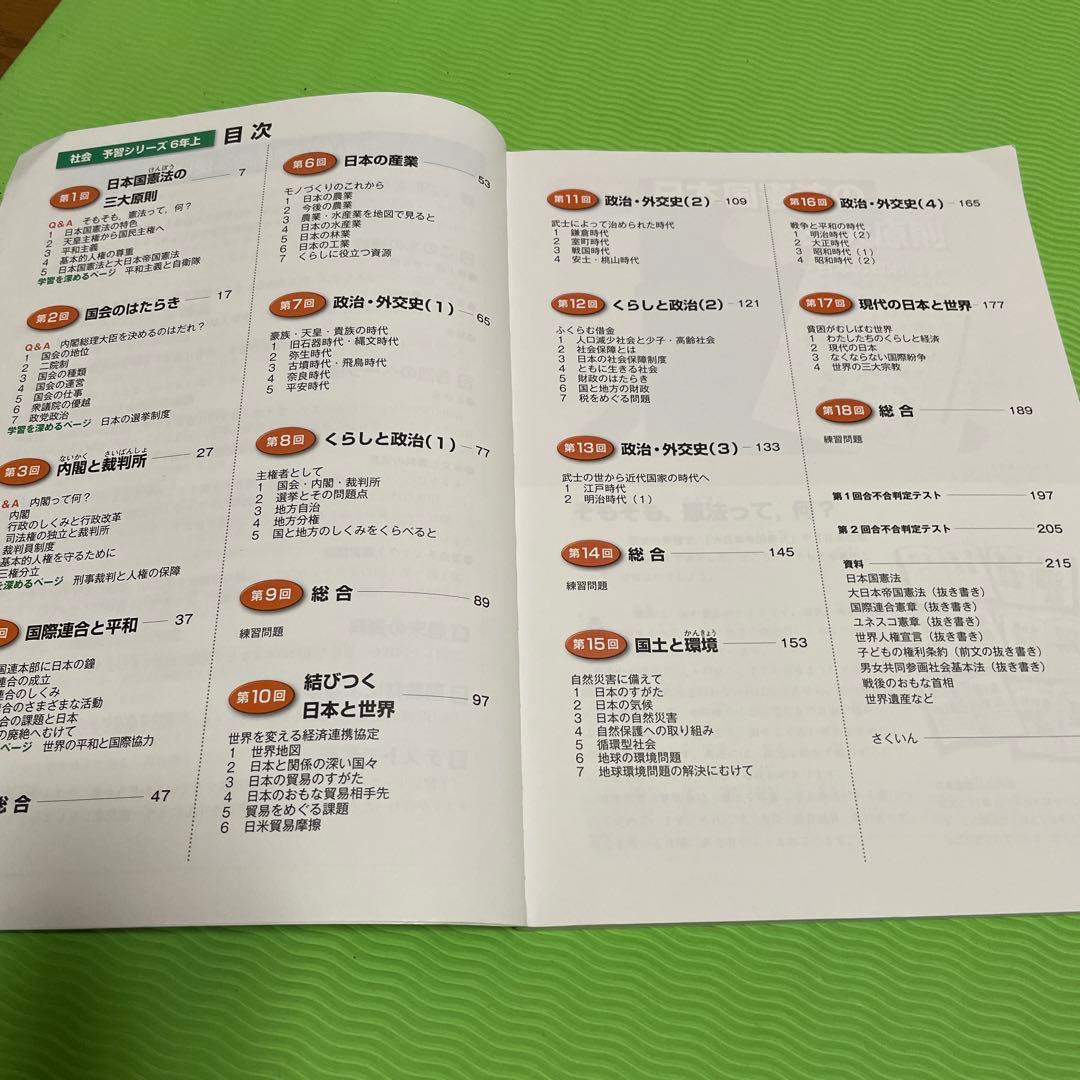 社会 予習シリーズ 6年上 目次
第1回 日本国憲法の三大原則 7
けんぽう
Q&A そもそも,憲法って,何?
1 日本国憲法の特色
2 天皇主権から国民主権へ
3 平和主義
4 基本的人権の尊重
5 日本国憲法と大日本帝国憲法
学習を深めるページ 平和主義と自衛隊
第2回 国会のはたらき 17
Q&A 内閣総理大臣を決めるのはだれ?
1 国会の地位
2 二院制
3 国会の種類
4 国会の運営
5 国会の仕事
6 衆議院の優越
7 政党政治
学習を深めるページ 日本の選挙制度
ないかく さいばんしょ
第3回 内閣と裁判所 27
&A 内閣って何?
内閣
行政のしくみと行政改革
司法権の独立と裁判所
裁判員制度
基本的人権を守るために
三権分立
を深めるページ 刑事裁判と人権の保障
回 国際連合と平和 37
国連本部に日本の鐘
連合の成立
合のしくみ
合のさまざまな活動
合の課題と日本
の廃絶へむけて
ページ 世界の平和と国際協力
総合 47
第6回 日本の産業 53
モノづくりのこれから
1 日本の農業
2 今後の農業
3 農業・水産業を地図で見ると
4 日本の水産業
5 日本の林業
6 日本の工業
7 くらしに役立つ資源
第7回 政治・外交史(1) 65
豪族・天皇・貴族の時代
1 旧石器時代・縄文時代
2 弥生時代
3 古墳時代・飛鳥時代
4 奈良時代
5 平安時代
第8回 くらしと政治(1) 77
主権者として
1 国会・内閣・裁判所
2 選挙とその問題点
3 地方自治
4 地方分権
5 国と地方のしくみをくらべると
第9回 総合 89
練習問題
第10回 結びつく日本と世界 97
世界を変える経済連携協定
1 世界地図
2 日本と関係の深い国々
3 日本の貿易のすがた
4 日本のおもな貿易相手先
5 貿易をめぐる課題
6 日米貿易摩擦
第11回 政治・外交史(2) 109
武士によって治められた時代
1 鎌倉時代
2 室町時代
3 戦国時代
4 安土・桃山時代
第12回 くらしと政治(2) 121
ふくらむ借金
1 人口減少社会と少子・高齢社会
2 社会保障とは
3 日本の社会保障制度
4 ともに生きる社会
5 財政のはたらき
6 国と地方の財政
7 税をめぐる問題
第13回 政治・外交史(3) 133
武士の世から近代国家の時代へ
1 江戸時代
2 明治時代(1)
第14回 総合 145
練習問題
かんきょう
第15回 国土と環境 153
自然災害に備えて
1 日本のすがた
2 日本の気候
3 日本の自然災害
4 自然保護への取り組み
5 循環型社会
6 地球の環境問題
7 地球環境問題の解決にむけて
第16回 政治・外交史(4) 165
戦争と平和の時代
1 明治時代(2)
2 大正時代
3 昭和時代(1)
4 昭和時代(2)
第17回 現代の日本と世界 177
貧困がむしばむ世界
1 わたしたちのくらしと経済
2 現代の日本
3 なくならない国際紛争
4 世界の三大宗教
第18回 総合 189
練習問題
第1回合不合判定テスト 197
第2回合不合判定テスト 205
資料 215
日本国憲法
大日本帝国憲法(抜き書き)
国際連合憲章(抜き書き)
ユネスコ憲章(抜き書き)
世界人権宣言(抜き書き)
子どもの権利条約(前文の抜き書き)
男女共同参画社会基本法(抜き書き)
戦後のおもな首相
世界遺産など
さくいん